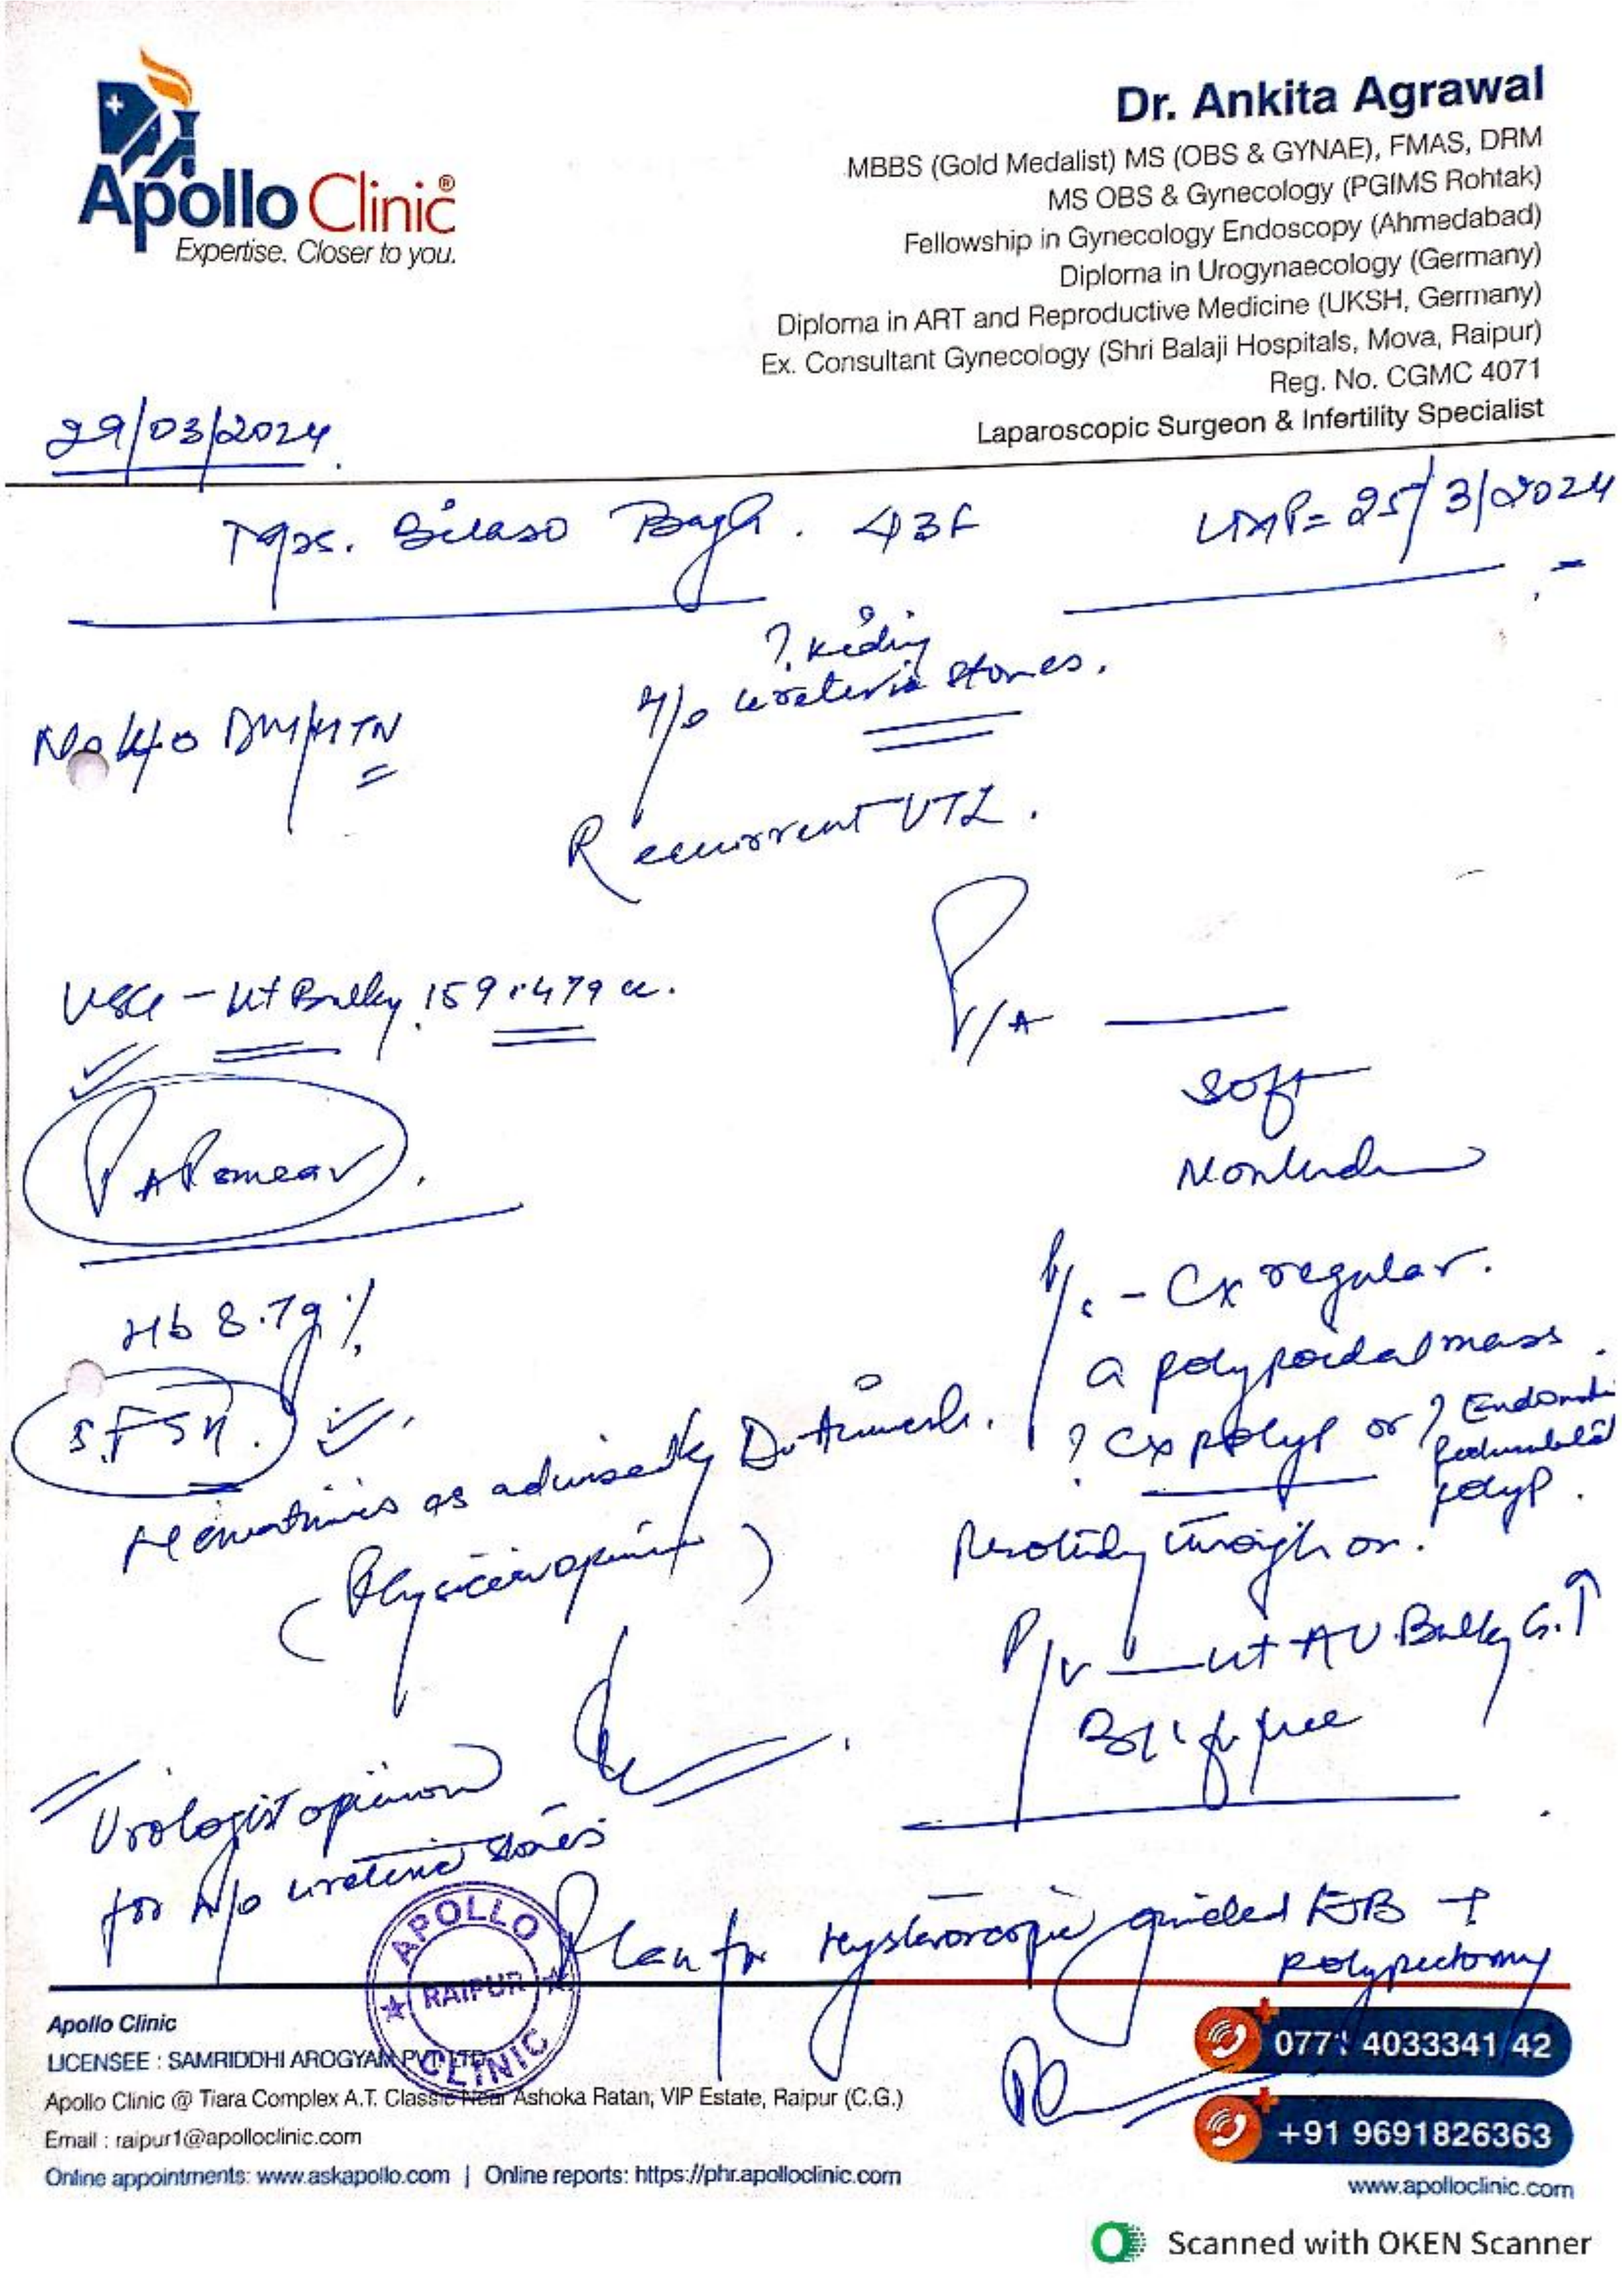 Apollo Clinic®
Expertise. Closer to you.
Dr. Ankita Agrawal
MBBS (Gold Medalist) MS (OBS & GYNAE), FMAS, DRM
MS OBS & Gynecology (PGIMS Rohtak)
Fellowship in Gynecology Endoscopy (Ahmedabad)
Diploma in Urogynaecology (Germany)
Diploma in ART and Reproductive Medicine (UKSH, Germany)
Ex. Consultant Gynecology (Shri Balaji Hospitals, Mova, Raipur)
Reg. No. CGMC 4071
Laparoscopic Surgeon & Infertility Specialist
29/03/2024
Mrs. Bagh. 43F
LMP= 25/3/2024
?
H/o ureteric stones.
No K/o DM/HTN
Recurrent UTI.
USG - Ut Bulky 159.479 cc.
P/A
soft
PAP smear.
Hb 8.7g%
P/s - Cx regular.
a polypoidal mass.
? Cx polyp or ?
polyp.
S.FSH.
Hematinics as advised by Dr
(Physician opinion)
through os.
P/v - ut AV Bulky
free
Urologist opinion
for H/o ureteric stones
Plan for Hysteroscopic guided +
polypectomy
APOLLO CLINIC
RAIPUR
Apollo Clinic
LICENSEE : SAMRIDDHI AROGYAM PVT LTD
Apollo Clinic @ Tiara Complex A.T. Classic Near Ashoka Ratan, VIP Estate, Raipur (C.G.)
Email : raipur1@apolloclinic.com
Online appointments: www.askapollo.com | Online reports: https://phr.apolloclinic.com
4033341 42
+91 9691826363
www.apolloclinic.com
Scanned with OKEN Scanner